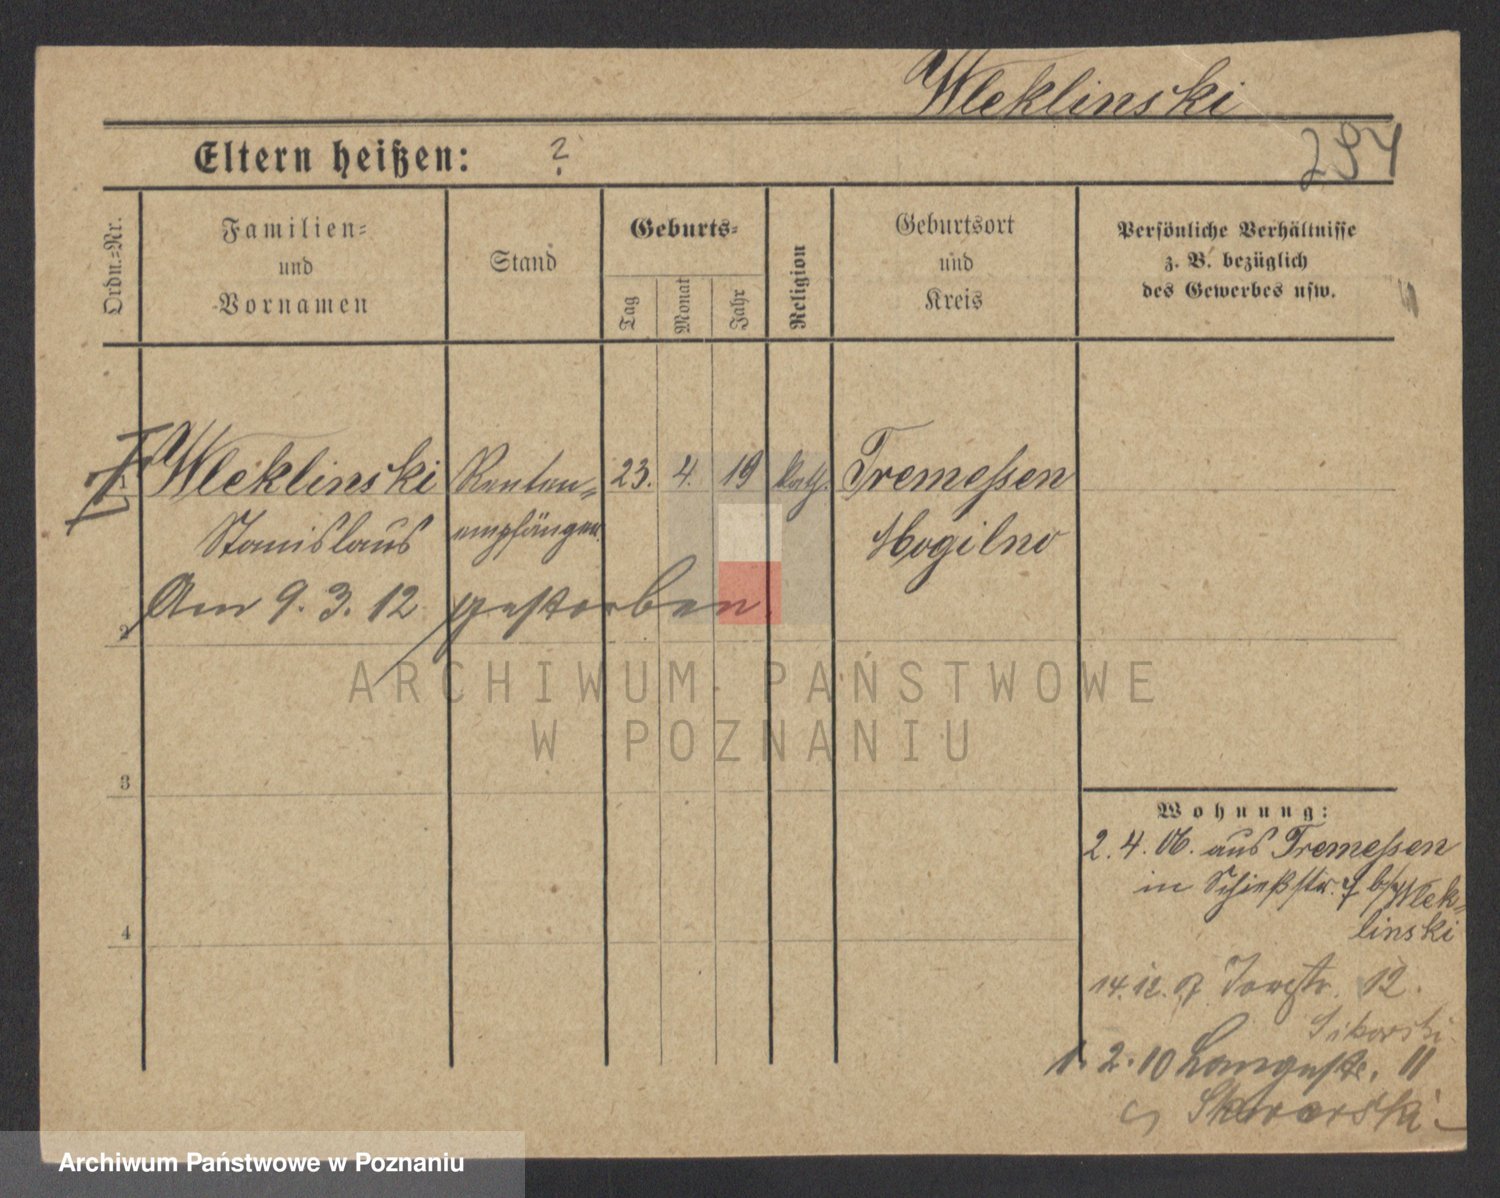 Wleklinski
Eltern heißen: ?
294
Ordn.-Nr.
Familien-
und
Vornamen
Stand
Geburts-
Tag
Monat
Jahr
Religion
Geburtsort
und
Kreis
Persönliche Verhältnisse
z. B. bezüglich
des Gewerbes usw.
Wleklinski Renten- 23. 4. 19 kath. Tremessen
Stanislaus empfänger Mogilno
Am 9. 3. 12 gestorben.
2
3
4
Wohnung:
2. 4. 06. aus Tremessen
in Schießstr. b/Wlek-
linski
14. 12. 12.
Sikorski
1. 2. 10 Langestr. 11
Skworski
ARCHIWUM PAŃSTWOWE
W POZNANIU
Archiwum Państwowe w Poznaniu